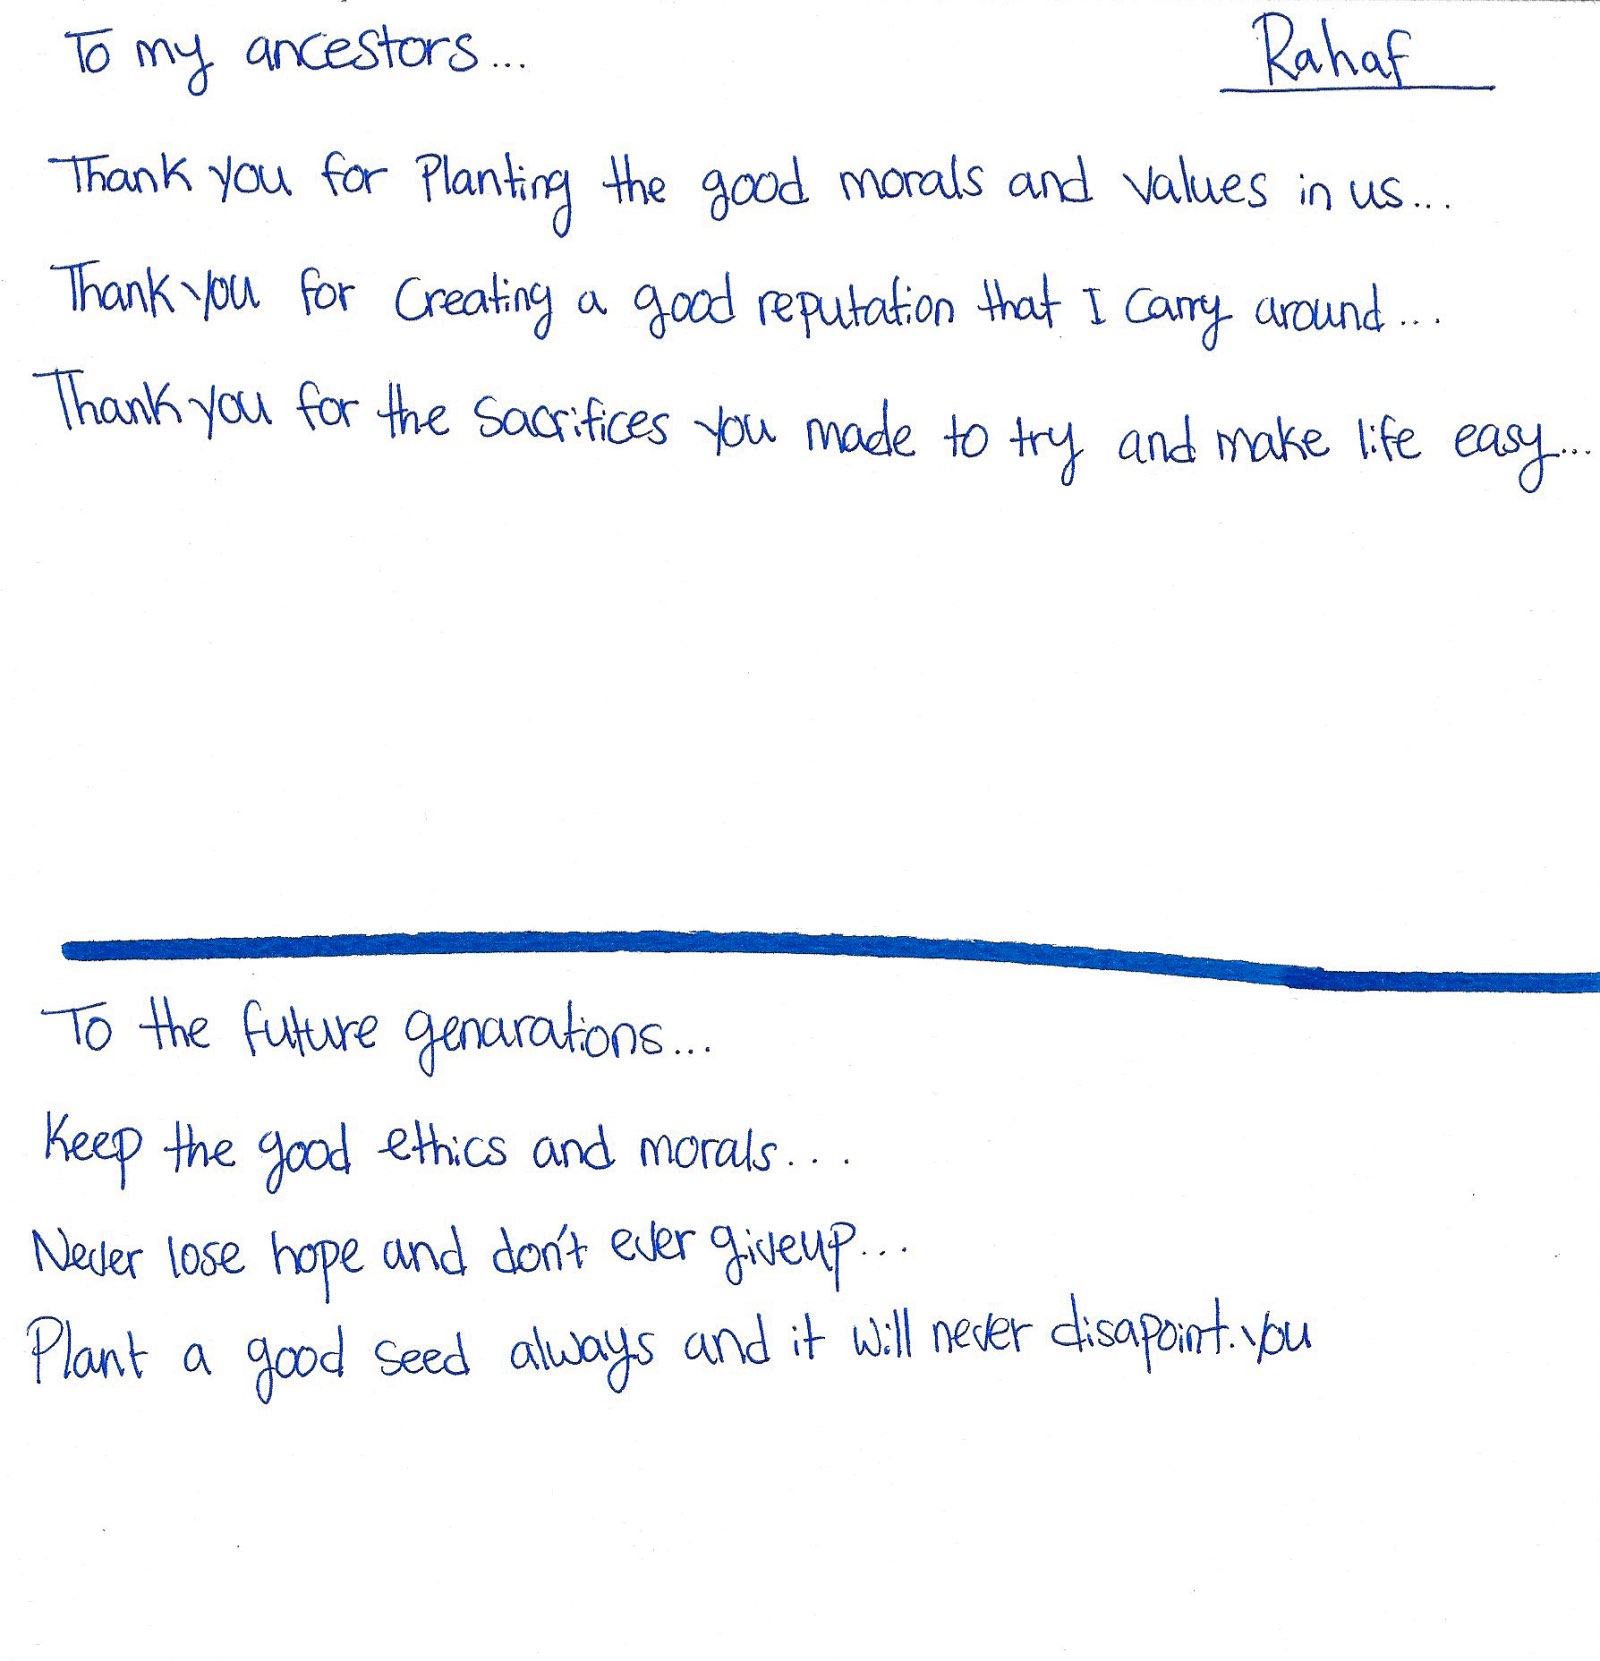 To my ancestors...
Rahaf
Thank you for Planting the good morals and values in us...
Thank you for Creating a good reputation that I carry around...
Thank you for the Sacrifices you made to try and make life easy...
To the future genarations...
Keep the good ethics and morals...
Never lose hope and don't ever giveup...
Plant a good seed always and it will never disapoint.you